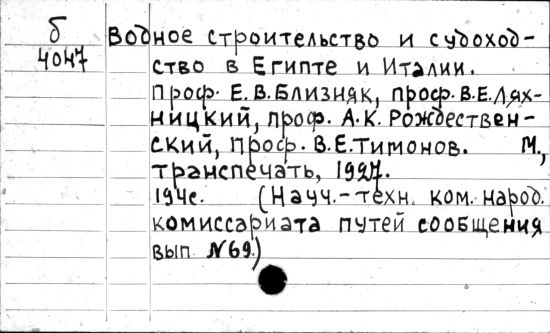 б
4047
Водное строительство и судоход-
ство в Египте и Италии.
Проф. Е.В.Близняк, проф. В.Е.Лях-
ницкий, проф. А.К. Рождествен-
ский, проф. В.Е.Тимонов. М.,
транспечать, 1927.
194с. (Науч.-техн. ком. народ.
комиссариата путей сообщения
вып. №69.)